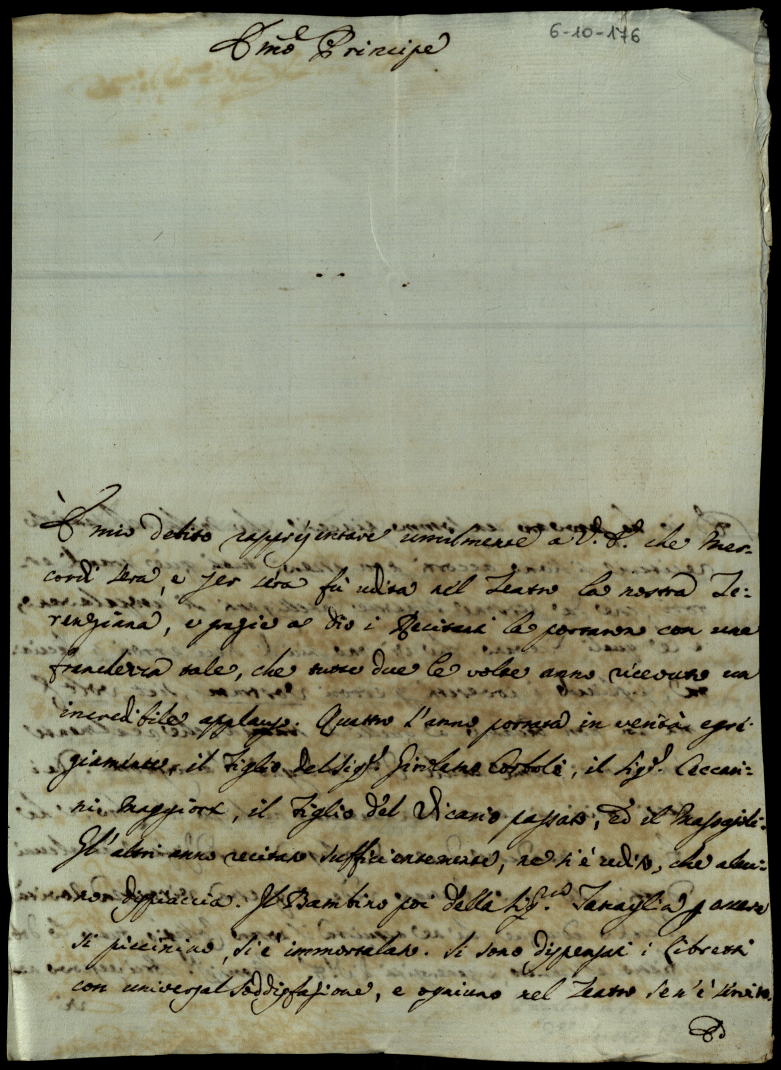 6-10-176
Emo Principe
È mio debito rappresentare umilmente a V. E. che Mer-
cordì sera, e jer sera fù udita nel Teatro la nostra Te-
renziana, e grazie a Dio i Recitanti la portaron con una
franchezza tale, che tutte due le volte anno ricevuto un
incredibile applauso. Quattro l'anno portata in verità egre-
giamente, il Figlio del Sigr. Girolamo, il Sigr. Ceccari-
ni maggiore, il Figlio del Vicario passato, ed il
Gl'altri anno recitato sufficientemente, ne s'è udito, che alcu-
no dispiaccia. Il Bambino poi della Sigra. Tanaglia p essere
sì piccinino, si è immortalato. Si sono dispensati i Libretti
con universal soddisfazione, e ogniuno nel Teatro se n'è servito.
Ed